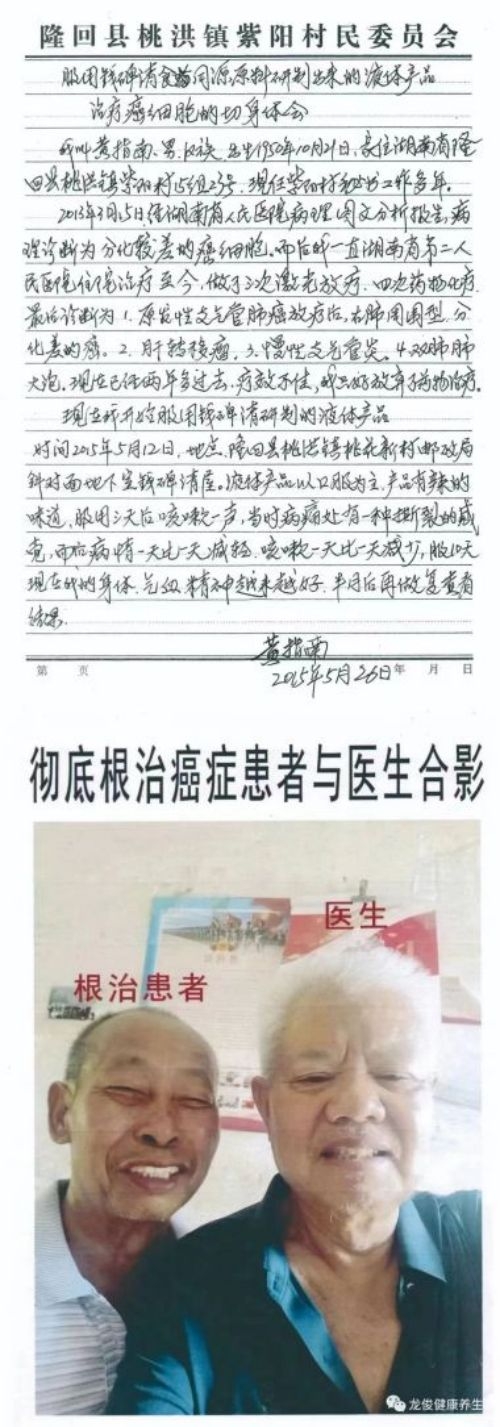 隆回县桃洪镇紫阳村民委员会
服用钱碑清食药同源原料研制出来的液体产品
治疗癌细胞的切身体会
我叫黄指南、男、汉族、出生1950年10月21日,家住湖南省隆
回县桃洪镇紫阳村15组23号,现任紫阳村秘书工作多年。
2013年3月15日经湖南省人民医院病理图文分析报告,病
理诊断为分化较差的癌细胞.而后我一直湖南省第二人
民医院住院治疗至今,做了三次激光放疗.四次药物化疗.
最后诊断为1.原发性支气管肺癌放疗后,右肺周围型.分
化差的癌.2.肝转移瘤.3.慢性支气管炎.4.双肺肺
大泡.现在已经两年多过去,疗效不佳,我只好放弃了药物治疗。
现在我开始服用钱碑清研制的液体产品
时间2015年5月12日,地点.隆回县桃洪镇桃花新村邮政局
斜对面地下室钱碑清屋。液体产品以口服为主,产品有辣的
味道,服用三天后咳嗽一声,当时病痛处有一种撕裂的感
觉,而后病情一天比一天减轻.咳嗽一天比一天减少,服10天
现在我的身体.气血.精神越来越好.半月后再做复查看
结果.
黄指南
2015年5月26日
第 页 年 月 日
彻底根治癌症患者与医生合影
医生
根治患者
龙俊健康养生